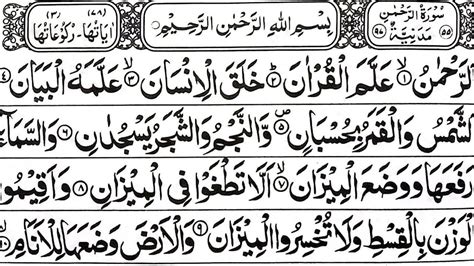 سُوْرَةُ الرَّحْمٰنِ مَدَنِيَّةٌ ٥٥ ٩٧ بِسْمِ اللهِ الرَّحْمٰنِ الرَّحِيْمِ اٰيَاتُهَا (٧٨) رُكُوْعَاتُهَا (٣)
لرَّحْمٰنُ ۙ١ عَلَّمَ الْقُرْاٰنَ ؕ٢ خَلَقَ الْاِنْسَانَ ۙ٣ عَلَّمَهُ الْبَيَانَ ٤
لشَّمْسُ وَالْقَمَرُ بِحُسْبَانٍ ۪٥ وَّالنَّجْمُ وَالشَّجَرُ يَسْجُدَانِ ٦ وَالسَّمَآءَ
رَفَعَهَا وَوَضَعَ الْمِيْزَانَ ۙ٧ اَلَّا تَطْغَوْا فِى الْمِيْزَانِ ٨ وَاَقِيْمُو
لْوَزْنَ بِالْقِسْطِ وَلَا تُخْسِرُوا الْمِيْزَانَ ٩ وَالْاَرْضَ وَضَعَهَا لِلْاَنَامِ ۙ١٠